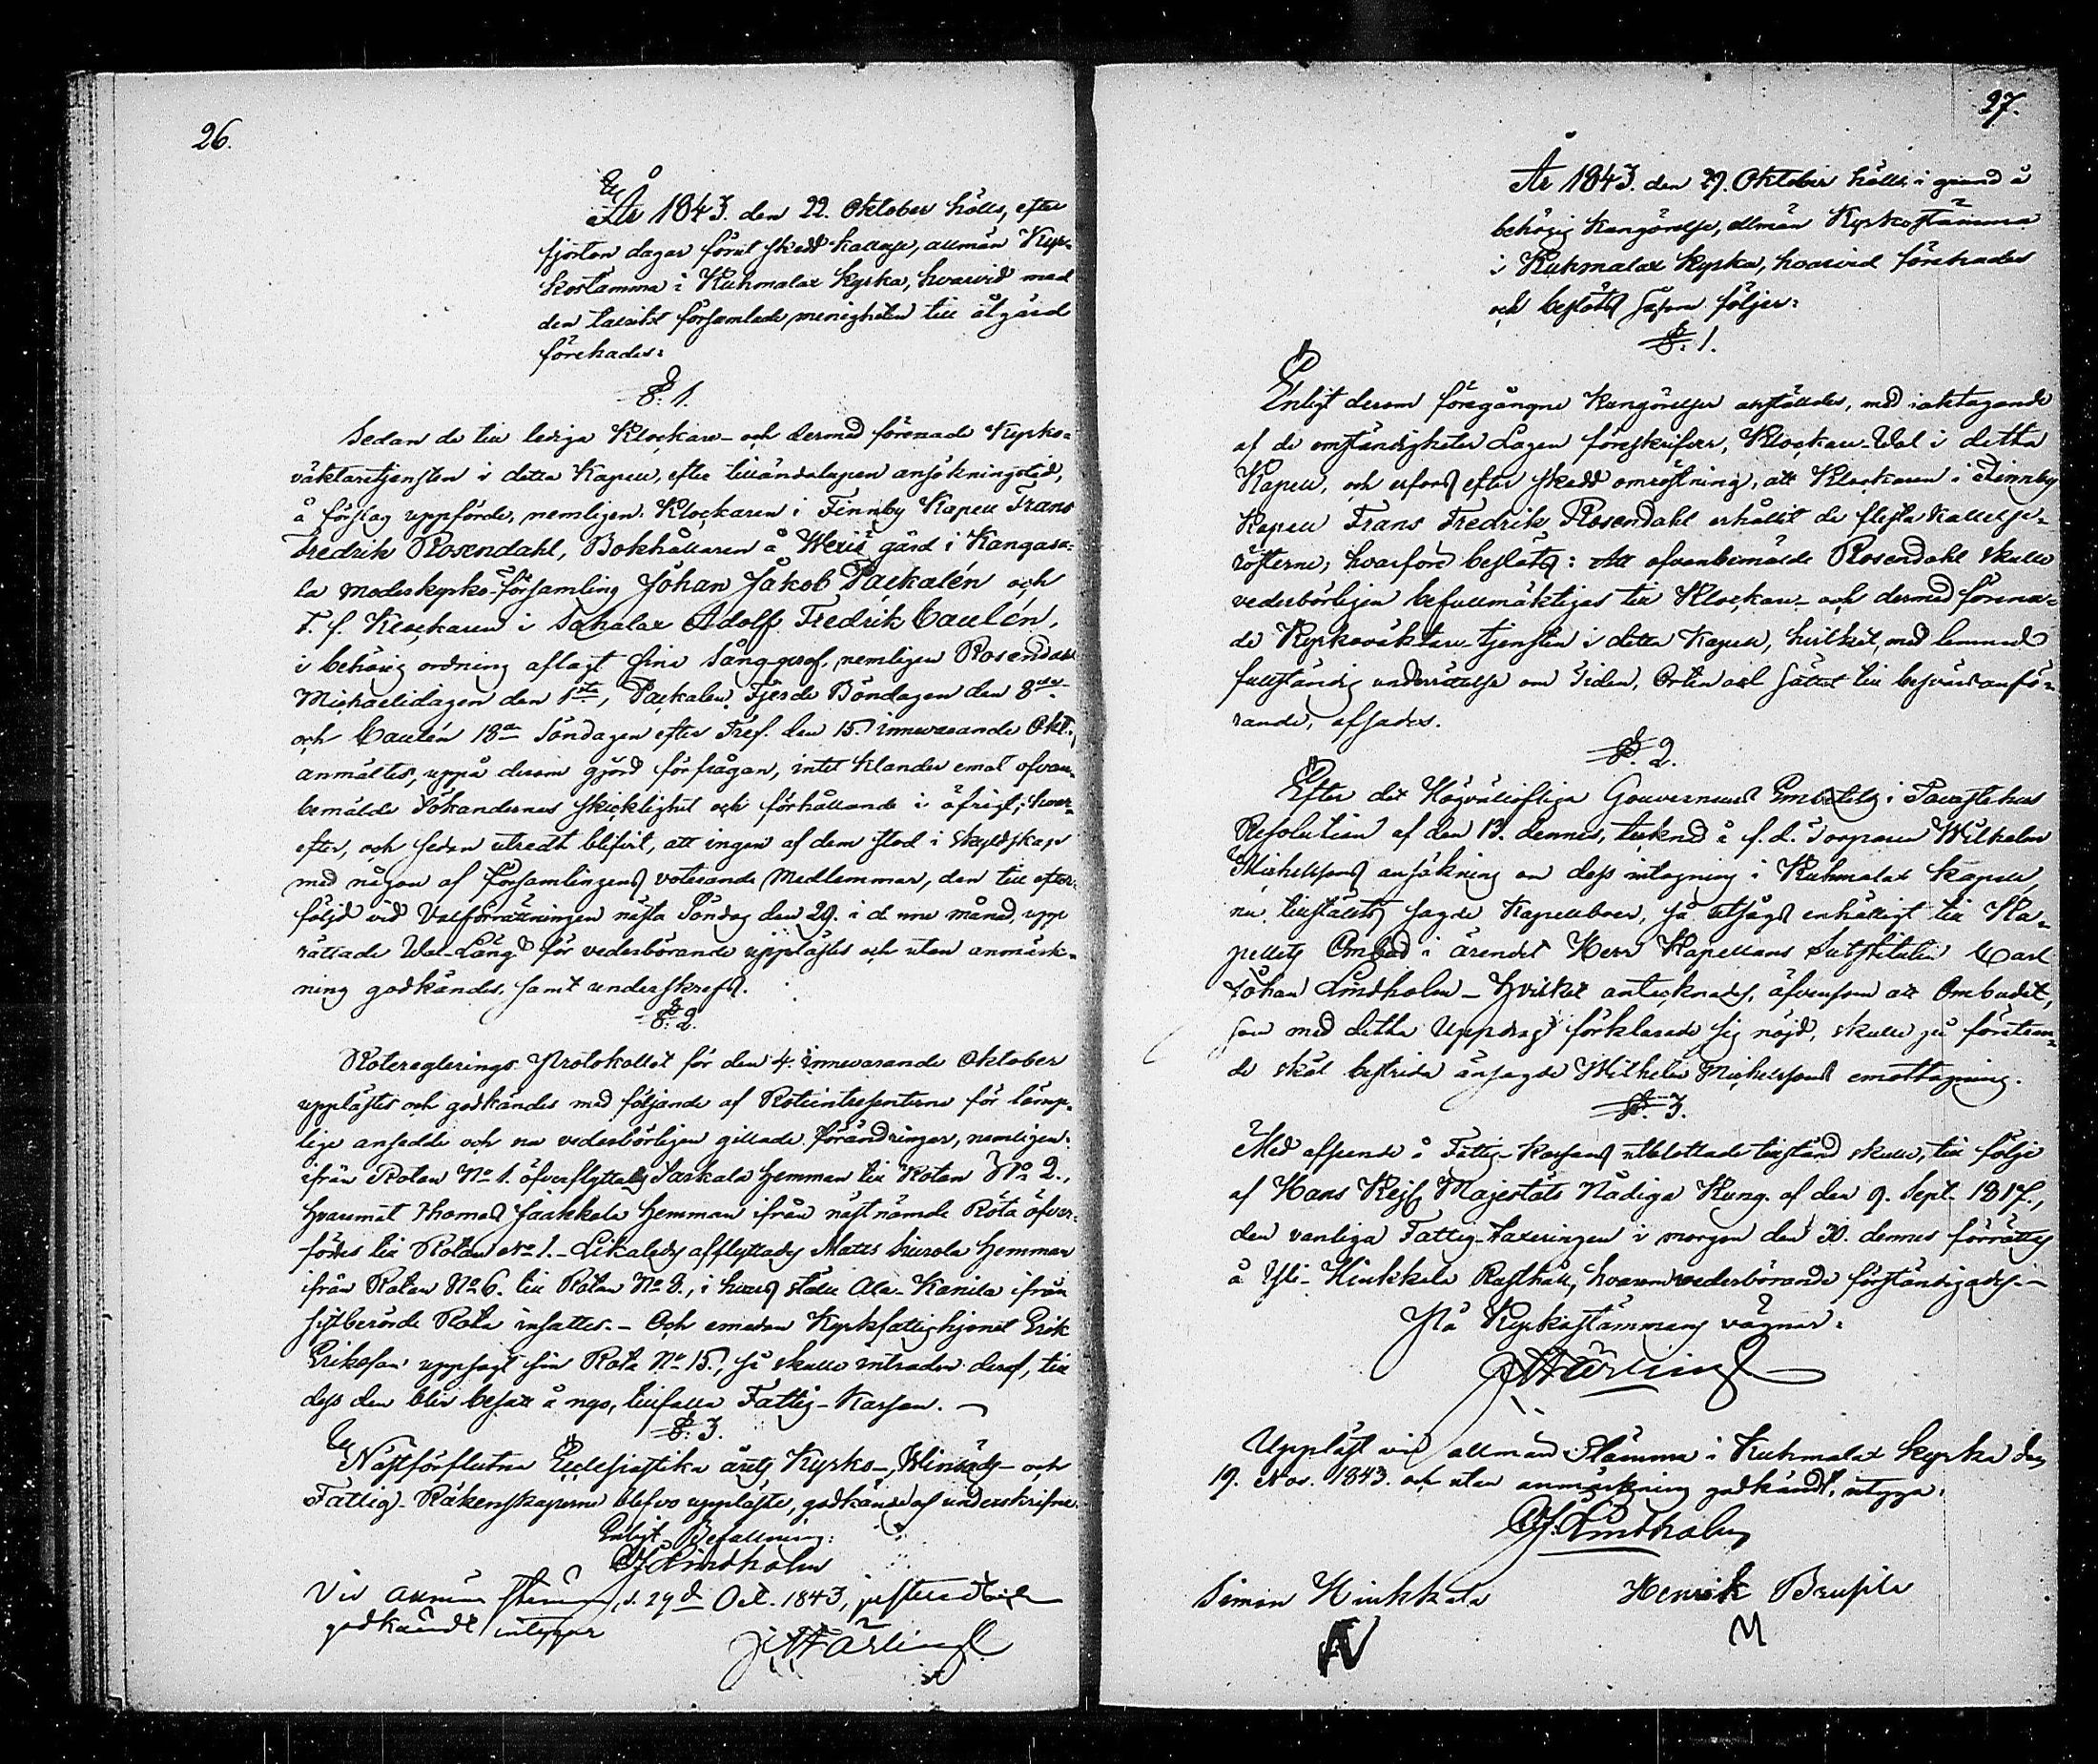 26.
År 1843. den 22. Oktober hölls, efter
fjorton dagar förut skedd kallelse, allmän Kyr-
kostämma i Kuhmalax Kyrka, hvarvid med
den talrikt församlade menigheten till åtgärd
förehades:
§. 1.
Sedan de till lediga Klockare- och dermed förenade Kyrko-
väktaretjensten i detta Kapell, efter tilländalupen ansökningstid,
å förslag uppförde, nemligen: Klockaren i Finnby Kapell Frans
Fredrik Rosendahl, Bokhållaren å Wexiö gård i Kangasa-
la moderkyrko-församling Johan Jakob Packalén och
T. f. Klockaren i Sahalax Adolf Fredrik Caulén,
i behörig ordning aflagt sine Sång-prof, nemligen Rosendahl
Michaelidagen den 1sta, Packalen Fjerde Böndagen den 8de
och Caulén 18de Söndagen efter Tref. den 15. innevarande Okt.,
anmältes, uppå derom gjord förfrågan, intet klander emot ofvan-
bemälde Sökandernas skicklighet och förhållande i öfrigt; hvar-
efter, och sedan utredt blifvit, att ingen af dem stod i Skyldskap
med någon af församlingens voterande Medlemmar, den till efter-
följd vid Valförrättningen nästa Söndag den 29. i denne månad, upp-
rättade Val-Längd för vederbörande upplästes och utan anmärk-
ning godkändes, samt underskrefs.
§. 2.
Rotereglerings Protokollet för den 4. innevarande Oktober
upplästes och godkändes med följande af Roteintressenterne för lämp-
lige ansedde och nu vederbörligen gillade förändringar, nemligen:
ifrån Rotan No 1. öfverflyttades Jaakala Hemman till Rotan No 2.,
hvaremot Thomas Jaakkola Hemman ifrån näst nämde Rota öfver-
fördes till Rotan No 1. - Likaledes afflyttades Matts Hemman
ifrån Rotan No 6. till Rotan No 8., i hvars ställe Ala-Kanila ifrån
sistberörde Rota insattes. - Och emedan Kyrkfattighjonet Erik
Eriksson uppsagt sin Rota No 15., så skulle intraden deraf, till
dess den blir besatt å nyo, tillfalla Fattig-Kassan.
§. 3.
Nästförflutna Ecclesiastika årets Kyrko-, Vinsäds- och
Fattig-Räkenskaperne blefvo uppläste, godkände af underskrifne.
Enligt Befallning:
C J Lindholm
Vid allmän stämma, d. 29d Oct. 1843, justeradt och
godkändt intygar
J. H. Färling
27.
År 1843. den 29. Oktober hölls i grund å
behörig kungörelse, allmän Kyrkostämma
i Kuhmalax Kyrka, hvarvid förehades
och beslöts såsom följer:
§. 1.
Enligt derom föregångne Kungörelser anställdes, med iakttagande
af de omständigheter Lagen föreskrifver, Klockare-Val i detta
Kapell, och erfors efter skedd omröstning, att Klockaren i Finnby
Kapell Frans Fredrik Rosendahl erhållit de flesta kallelse-
rösterne; hvarföre beslöts: Att ofvanbemälde Rosendahl skulle
vederbörligen befullmäktigas till Klockare- och dermed förena-
de Kyrkoväktare-tjensten i detta Kapell, hvilket, med lemnad
fullständig underrättelse om Tiden, Orten och sättet till besvärs anfö-
rande, afsades.
§. 2.
Efter det Högvällofliga Gouverneurs Embetets i Tavastehus
Resolution af den 13. dennes, tecknad å f. d. Torparen Wilhelm
Michelssons ansökning om dess intagning i Kuhmalax Kapell,
nu tillställts sagde Kapellboer, så utsågs enhälligt till Ka-
pellets Ombud i ärendet Herr Kapellans Substituten Carl
Johan Lindholm - Hvilket antecknades, äfvensom att Ombudet,
som med detta Uppdrag förklarade sig nöjd, skulle på förekom-
de skäl bestrida änsagde Wilhelm Michelssons emottagning.
§. 3.
Med afseende å Fattig-Kassans utblottade tillstånd skulle, till följe
af Hans Kejs. Majestäts Nådiga Kung. af den 9. Sept. 1817.,
den vanliga Fattig-Taxeringen i morgon den 30. dennes förrättas
å Yli-Hinkkala Rusthåll, hvarom vederbörande förständigades. -
På Kyrkostämmans vägnar:
J H Färling
Uppläst vid allmän Stämma i Kuhmalax Kyrka den
19. Nov. 1843. och utan anmärkning godkändt, intyga.
C J. Lindholm
Simon Hinkkala
Henrik